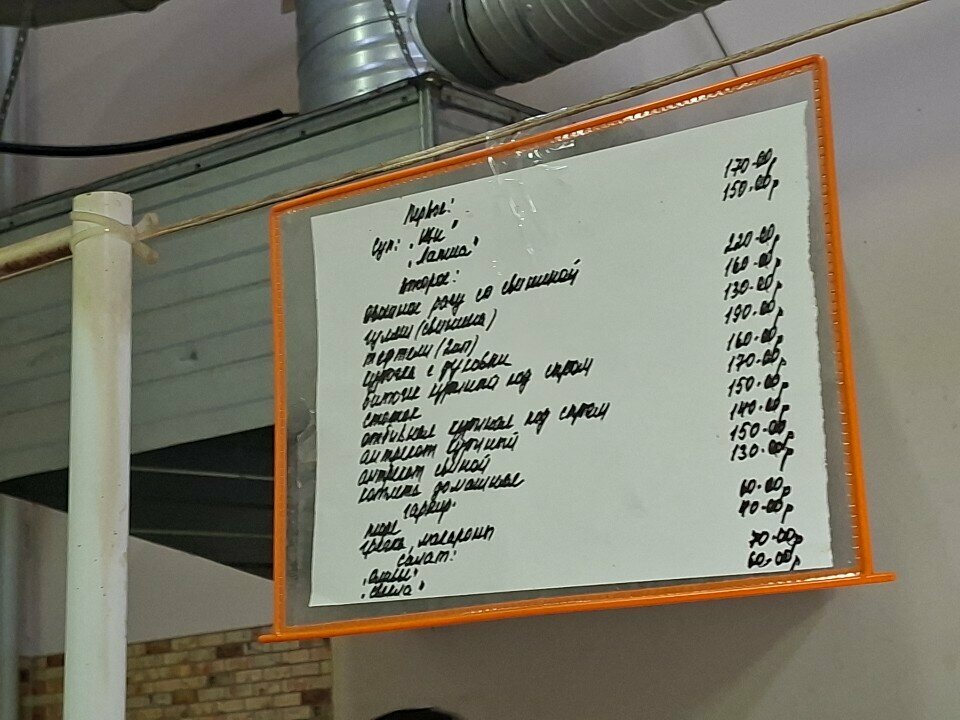 Первое:
Суп: "Щи" 170-00р
"Лапша" 150-00р
Второе:
Овощное рагу со свининой 220-00р
Гуляш (свинина) 160-00р
Тефтели (2шт) 130-00р
курочка с духовки 190-00р
биточек куриный под сыром 160-00р
стожок 170-00р
отбивная куриная под сыром 150-00р
антрекот куриный 140-00р
антрекот свиной 150-00р
котлеты домашние 130-00р
Гарнир.
пюре 60-00р
гречка, макароны 40-00р
салат:
"Оливье" 70-00р
"Свекла" 60-00р